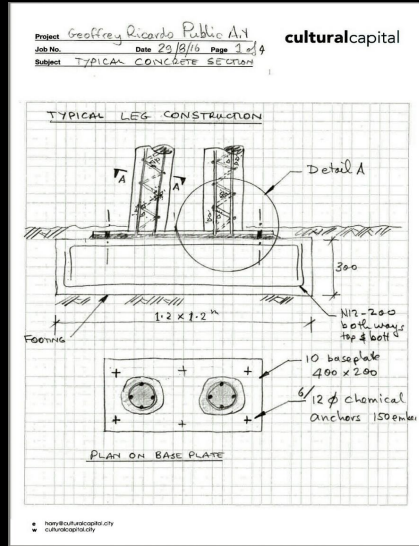 Project Geoffrey Ricardo Public Art
culturalcapital
Job No. Date 29/8/16 Page 1 of 4
Subject TYPICAL CONCRETE SECTION
TYPICAL LEG CONSTRUCTION
A A
Detail A
300
1.2 x 1.2 m
N12-200
both ways
top & bott
FOOTING
10 baseplate
400 x 200
6/12 φ chemical
anchors 150 embed
PLAN ON BASE PLATE
e harry@culturalcapital.city
w culturalcapital.city